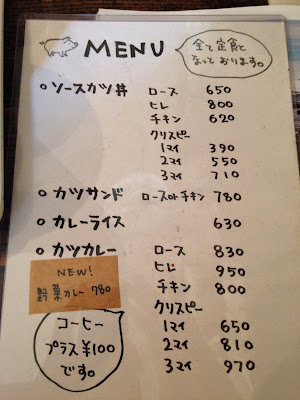 MENU
全て定食と
なっております。
○ソースカツ丼 ロース 650
ヒレ 800
チキン 620
クリスピー
1マイ 390
2マイ 550
3マイ 710
○カツサンド ロースorチキン 780
○カレーライス 630
○カツカレー ロース 830
ヒレ 950
チキン 800
クリスピー
1マイ 650
2マイ 810
3マイ 970
NEW!
野菜カレー 780
コーヒー
プラス¥100
です。